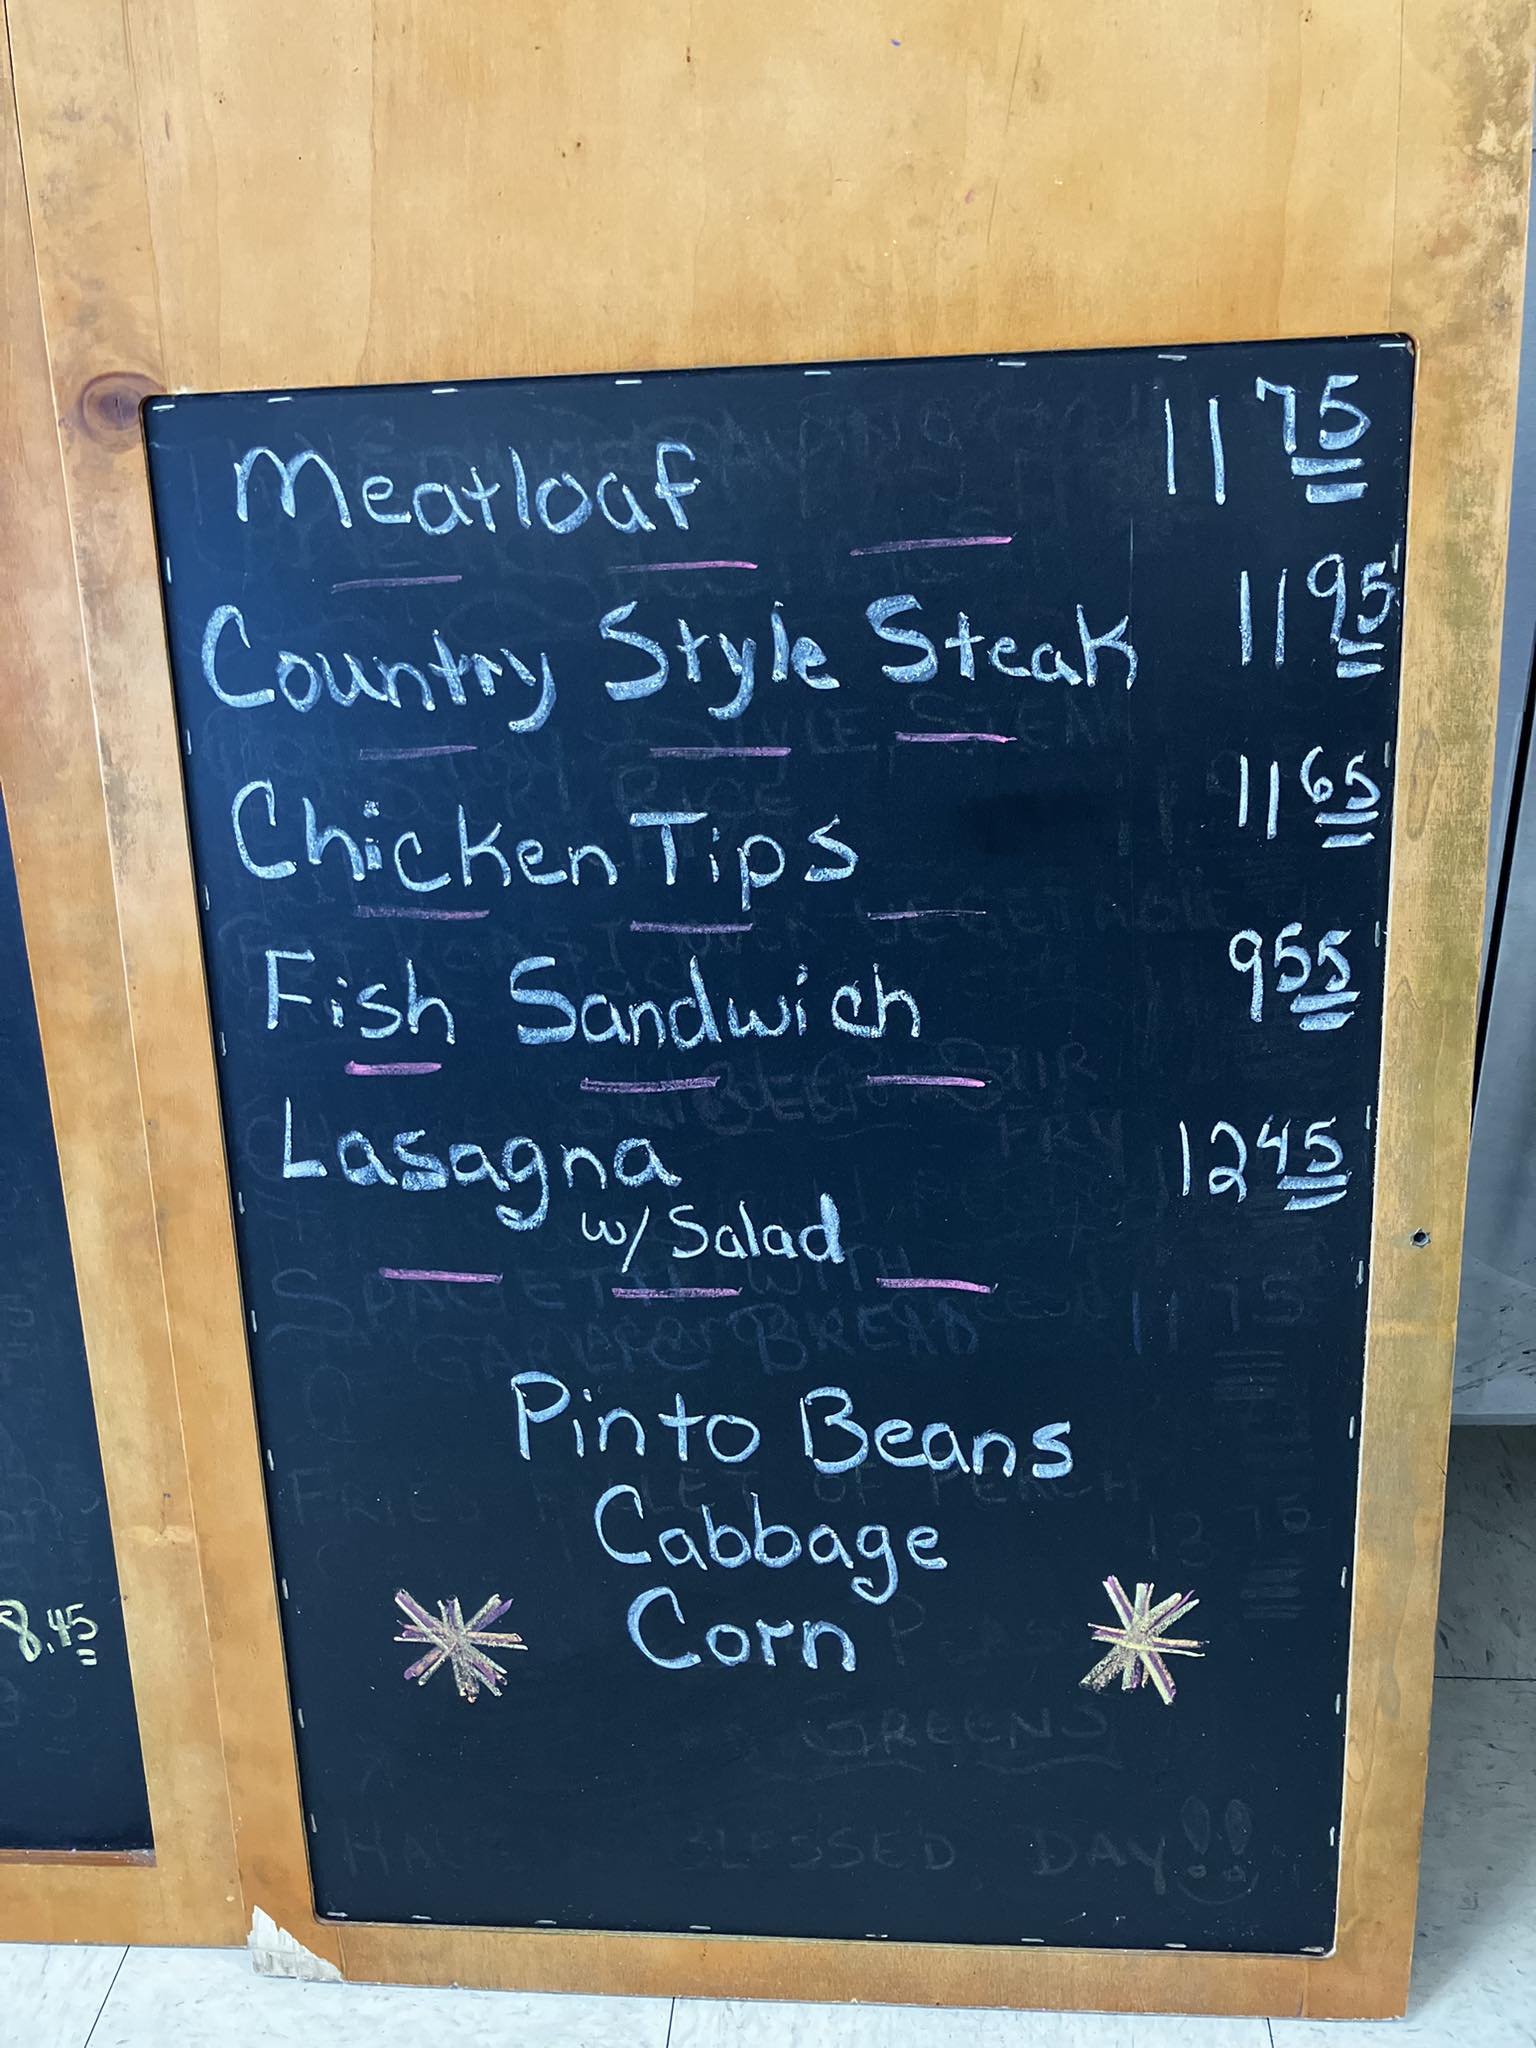 Meatloaf 11 75
Country Style Steak 11 95
Chicken Tips 11 65
Fish Sandwich 9 55
Lasagna 12 45
w/ Salad
Pinto Beans
Cabbage
Corn
8.45
GREENS
BLESSED DAY!!